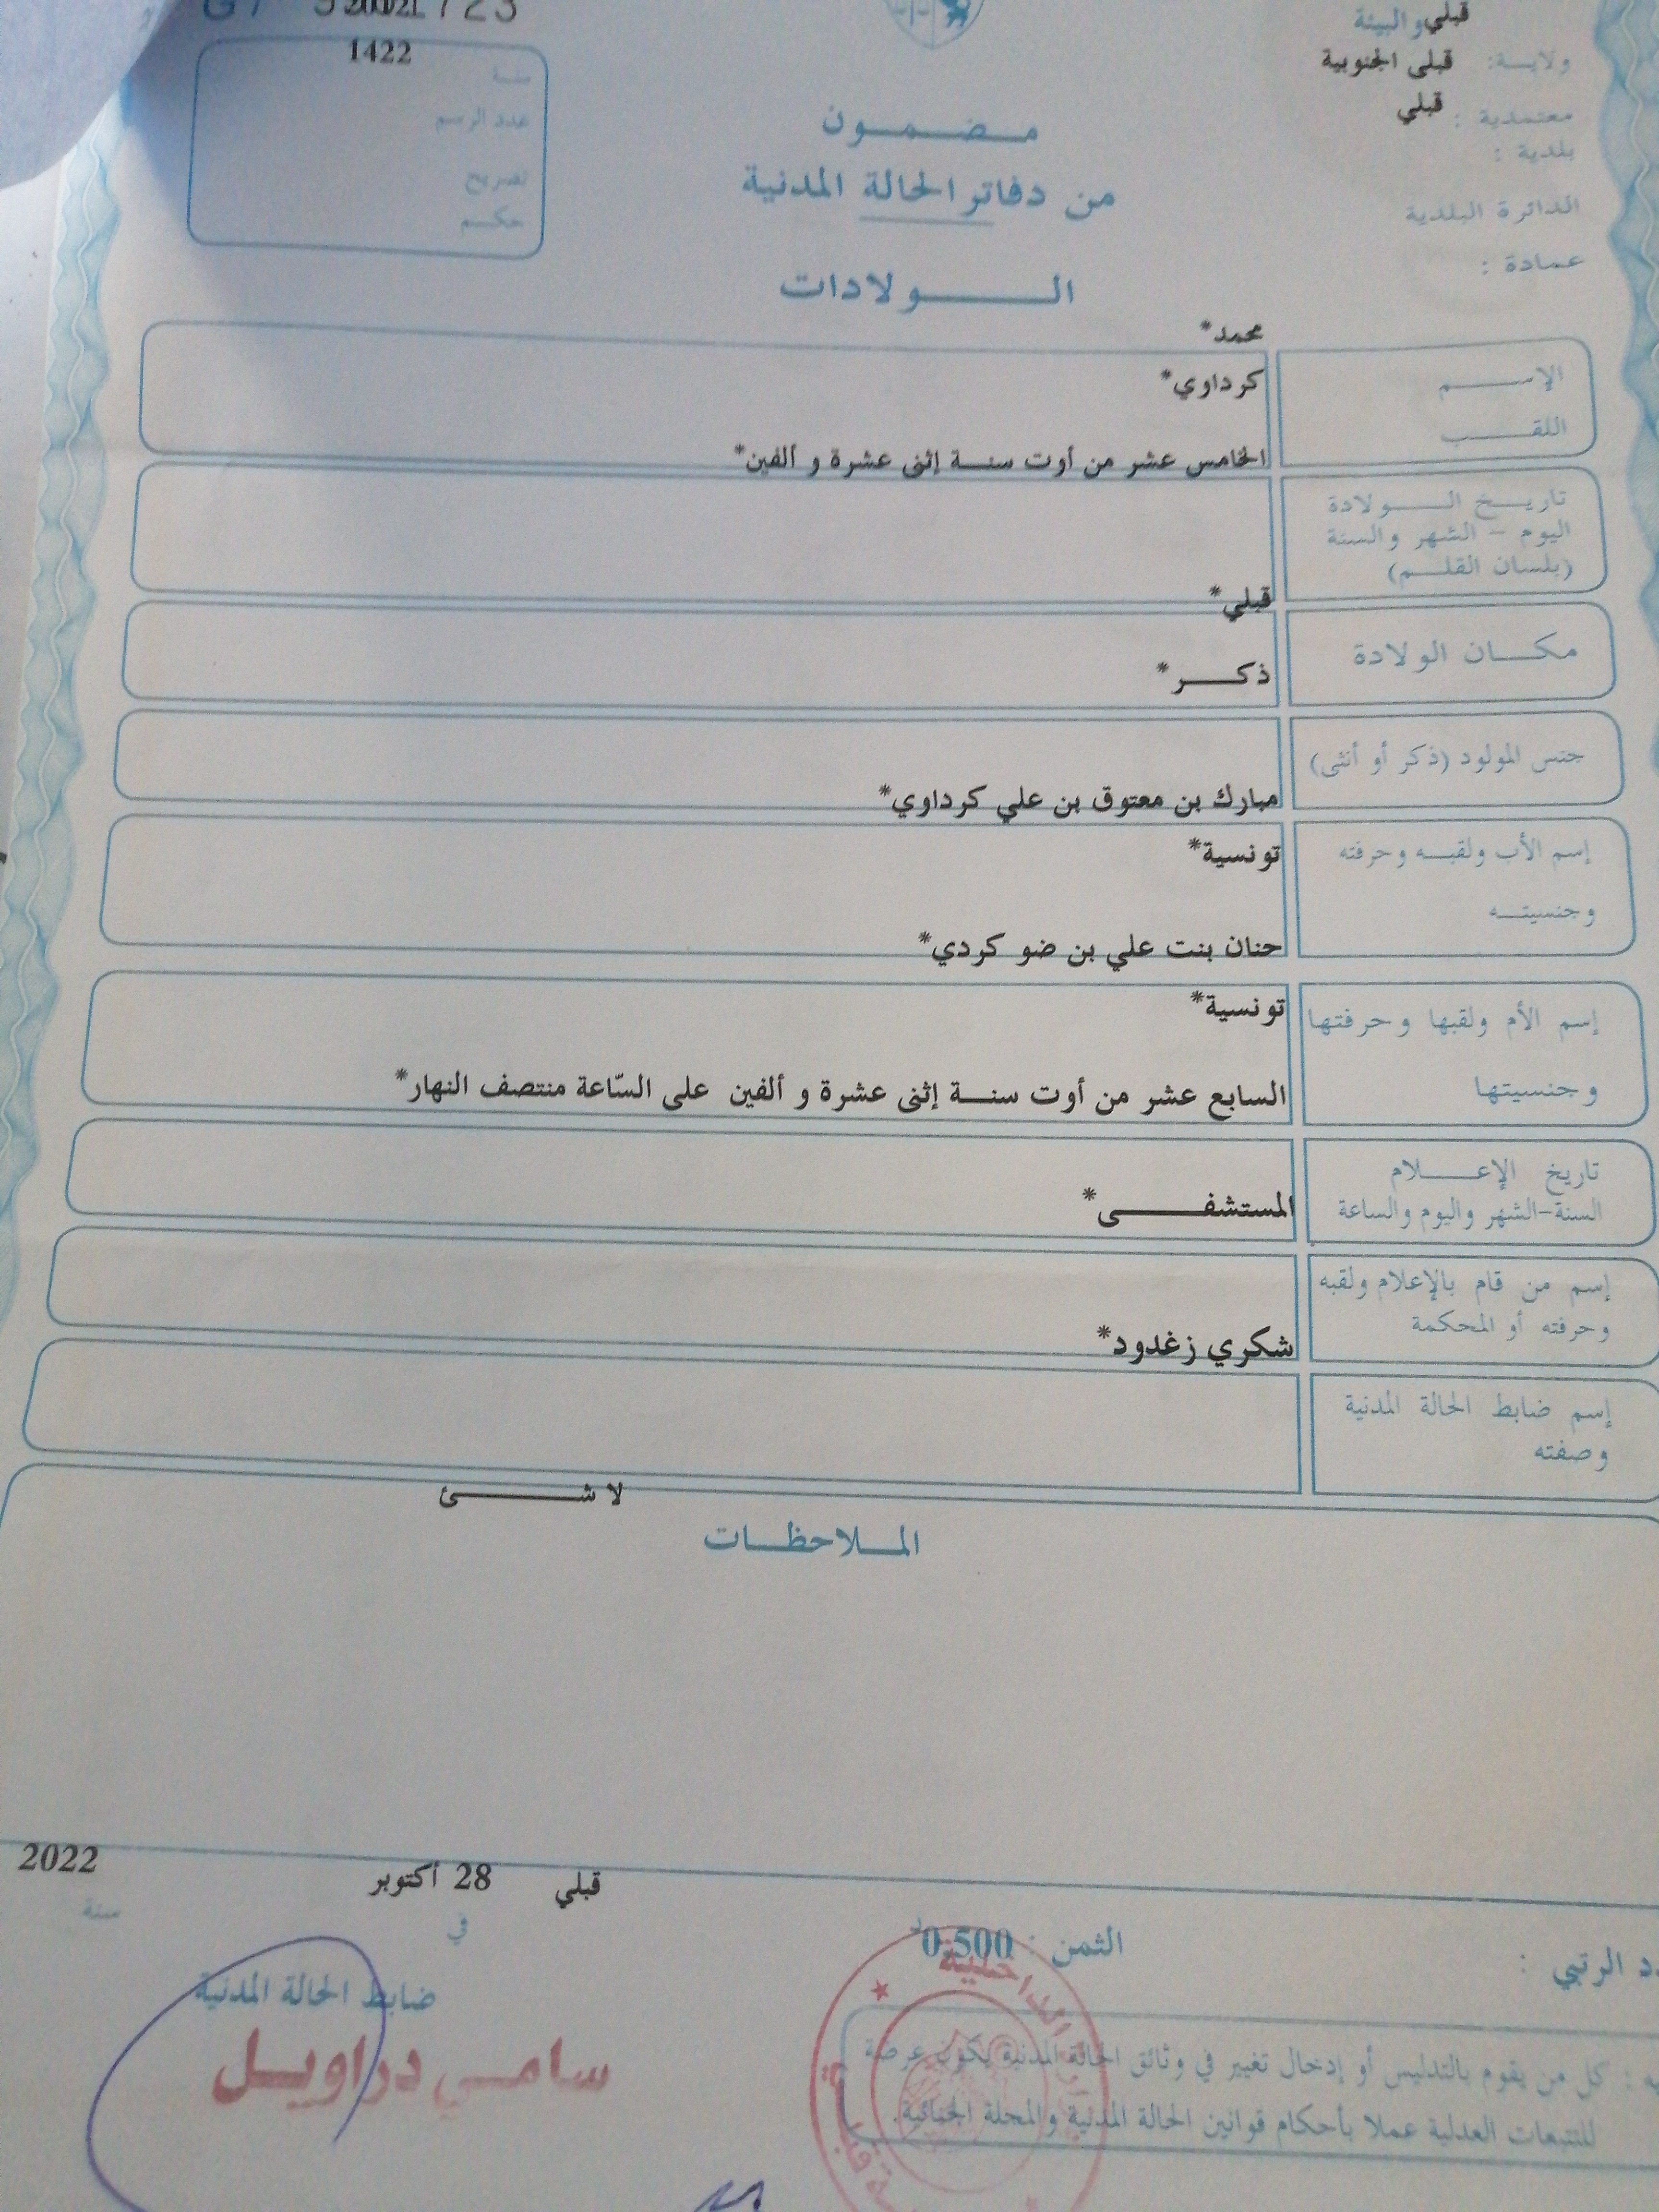 قبلي
والبيئة
ولايـــة: قبلى الجنوبية
معتمدية : قبلي
بلدية :
الدائرة البلدية
عمادة :
1422
سنـة
عدد الرسم
تصريح
حكـم
مـضـمـون
من دفاتر الحالة المدنية
الـولادات
محمد*
الإسـم
كرداوي*
اللقـب
الخامس عشر من أوت سنـة إثنى عشرة و ألفين*
تاريـخ الـولادة
اليوم – الشهر والسنة
(بلسان القلـم)
قبلي*
مكـان الولادة
ذكـر*
جنس المولود (ذكر أو أنثى)
مبارك بن معتوق بن علي كرداوي*
إسم الأب ولقبـه وحرفته
تونسية*
وجنسيتـه
حنان بنت علي بن ضو كردي*
إسم الأم ولقبها وحرفتها
تونسية*
وجنسيتها
السابع عشر من أوت سنـة إثنى عشرة و ألفين على السّاعة منتصف النهار*
تاريخ الإعـلام
السنة-الشهر واليوم والساعة
المستشفـى*
إسم من قام بالإعلام ولقبه
وحرفته أو المحكمة
شكري زغدود*
إسم ضابط الحالة المدنية
وصفته
لا شـئ
الملاحظـات
قبلي 28 أكتوبر 2022
في سنة
الثمن : 0,500
ضابط الحالة المدنية
سامـي دراويـل
الرتبي :
كل من يقوم بالتدليس أو إدخال تغيير في وثائق الحالة المدنية يكون عرضة
للتتبعات العدلية عملا بأحكام قوانين الحالة المدنية والمجلة الجنائية.
الداخلية